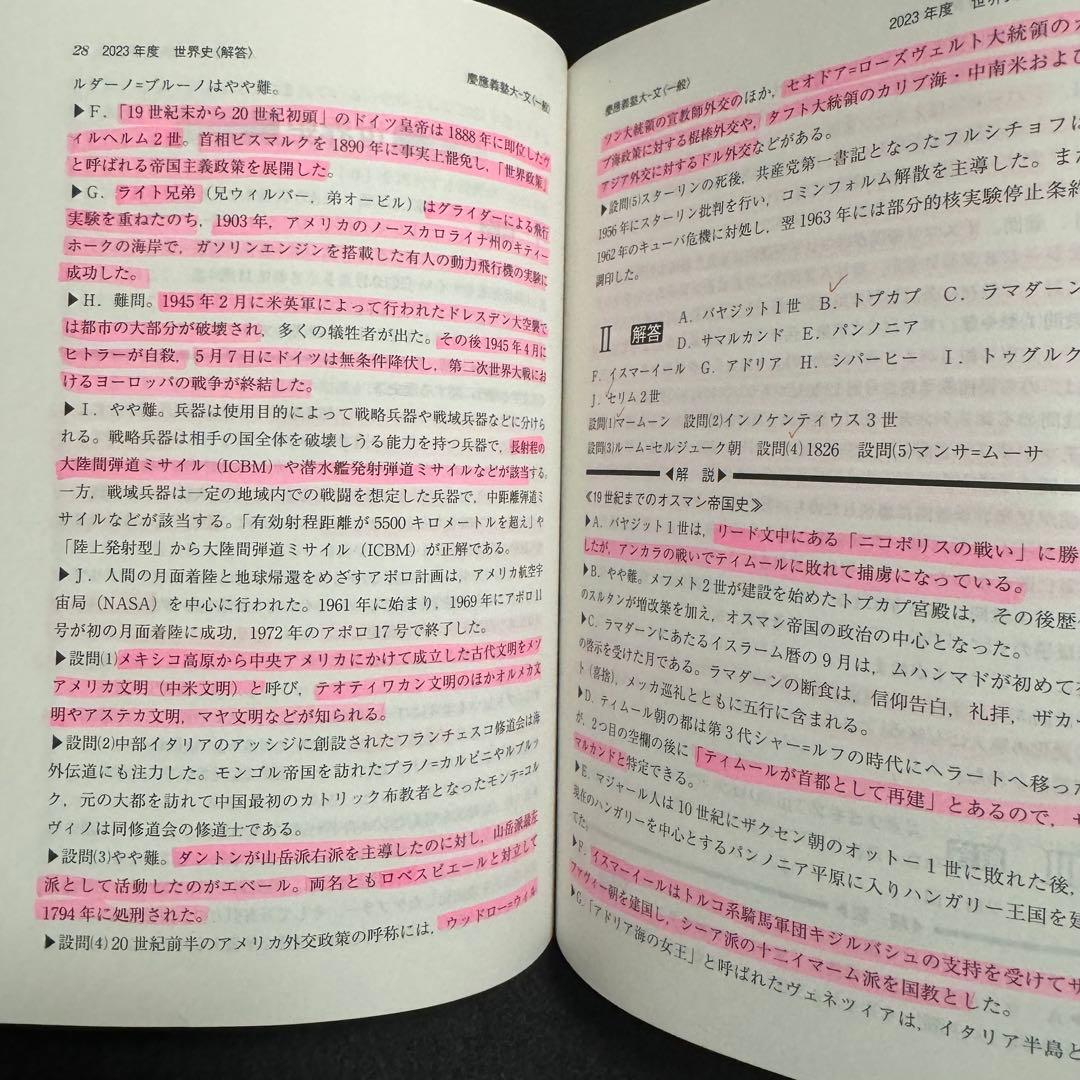 28 2023年度 世界史〈解答〉
慶應義塾大-文〈一般〉
ルダーノ=ブルーノはやや難。
▶F.「19世紀末から20世紀初頭」のドイツ皇帝は1888年に即位したヴ
ィルヘルム2世。首相ビスマルクを1890年に事実上罷免し,「世界政策」
と呼ばれる帝国主義政策を展開した。
▶G. ライト兄弟(兄ウィルバー,弟オービル)はグライダーによる飛行
実験を重ねたのち,1903年,アメリカのノースカロライナ州のキティー
ホークの海岸で,ガソリンエンジンを搭載した有人の動力飛行機の実験に
成功した。
▶H. 難問。1945年2月に米英軍によって行われたドレスデン大空襲で
は都市の大部分が破壊され,多くの犠牲者が出た。その後1945年4月に
ヒトラーが自殺,5月7日にドイツは無条件降伏し,第二次世界大戦にお
けるヨーロッパの戦争が終結した。
▶I. やや難。兵器は使用目的によって戦略兵器や戦域兵器などに分けら
れる。戦略兵器は相手の国全体を破壊しうる能力を持つ兵器で,長射程の
大陸間弾道ミサイル(ICBM)や潜水艦発射弾道ミサイルなどが該当する。
一方,戦域兵器は一定の地域内での戦闘を想定した兵器で,中距離弾道ミ
サイルなどが該当する。「有効射程距離が5500キロメートルを超え」や
「陸上発射型」から大陸間弾道ミサイル(ICBM)が正解である。
▶J. 人間の月面着陸と地球帰還をめざすアポロ計画は,アメリカ航空宇
宙局(NASA)を中心に行われた。1961年に始まり,1969年にアポロ11
号が初の月面着陸に成功,1972年のアポロ17号で終了した。
▶設問(1)メキシコ高原から中央アメリカにかけて成立した古代文明をメソ
アメリカ文明(中米文明)と呼び,テオティワカン文明のほかオルメカ文
明やアステカ文明,マヤ文明などが知られる。
▶設問(2)中部イタリアのアッシジに創設されたフランチェスコ修道会は海
外伝道にも注力した。モンゴル帝国を訪れたプラノ=カルピニやルブルッ
ク,元の大都を訪れて中国最初のカトリック布教者となったモンテ=コル
ヴィノは同修道会の修道士である。
▶設問(3)やや難。ダントンが山岳派右派を主導したのに対し,山岳派最左
派として活動したのがエベール。両名ともロベスピエールと対立して
1794年に処刑された。
▶設問(4)20世紀前半のアメリカ外交政策の呼称には,ウッドロー=ウィル
2023年度 世界史
慶應義塾大-文〈一般〉
ソン大統領の宣教師外交のほか,セオドア=ローズヴェルト大統領のカ
ブ海政策に対する棍棒外交や,タフト大統領のカリブ海・中南米および
アジア外交に対するドル外交などがある。
▶設問(5)スターリンの死後,共産党第一書記となったフルシチョフは
1956年にスターリン批判を行い,コミンフォルム解散を主導した。また
1962年のキューバ危機に対処し,翌1963年には部分的核実験停止条約
調印した。
Ⅱ 解答 A. バヤジット1世 B. トプカプ C. ラマダーン
D. サマルカンド E. パンノニア
F. イスマーイール G. アドリア H. シパーヒー I. トゥグルク
J. セリム2世
設問(1)マームーン 設問(2)インノケンティウス3世
設問(3)ルーム=セルジューク朝 設問(4)1826 設問(5)マンサ=ムーサ
◀解 説▶
≪19世紀までのオスマン帝国史≫
▶A. バヤジット1世は,リード文中にある「ニコポリスの戦い」に勝
したが,アンカラの戦いでティムールに敗れて捕虜になっている。
▶B. やや難。メフメト2世が建設を始めたトプカプ宮殿は,その後歴
のスルタンが増改築を加え,オスマン帝国の政治の中心となった。
▶C. ラマダーンにあたるイスラーム暦の9月は,ムハンマドが初めて
の啓示を受けた月である。ラマダーンの断食は,信仰告白,礼拝,ザカー
ト(喜捨),メッカ巡礼とともに五行に含まれる。
▶D. ティムール朝の都は第3代シャー=ルフの時代にヘラートへ移った
が,2つ目の空欄の後に「ティムールが首都として再建」とあるので,サ
マルカンドと特定できる。
▶E. マジャール人は10世紀にザクセン朝のオットー1世に敗れた後,
現在のハンガリーを中心とするパンノニア平原に入りハンガリー王国を建
てた。
▶F. イスマーイールはトルコ系騎馬軍団キジルバシュの支持を受けてサ
ファヴィー朝を建国し,シーア派の十二イマーム派を国教とした。
▶G.「アドリア海の女王」と呼ばれたヴェネツィアは,イタリア半島と